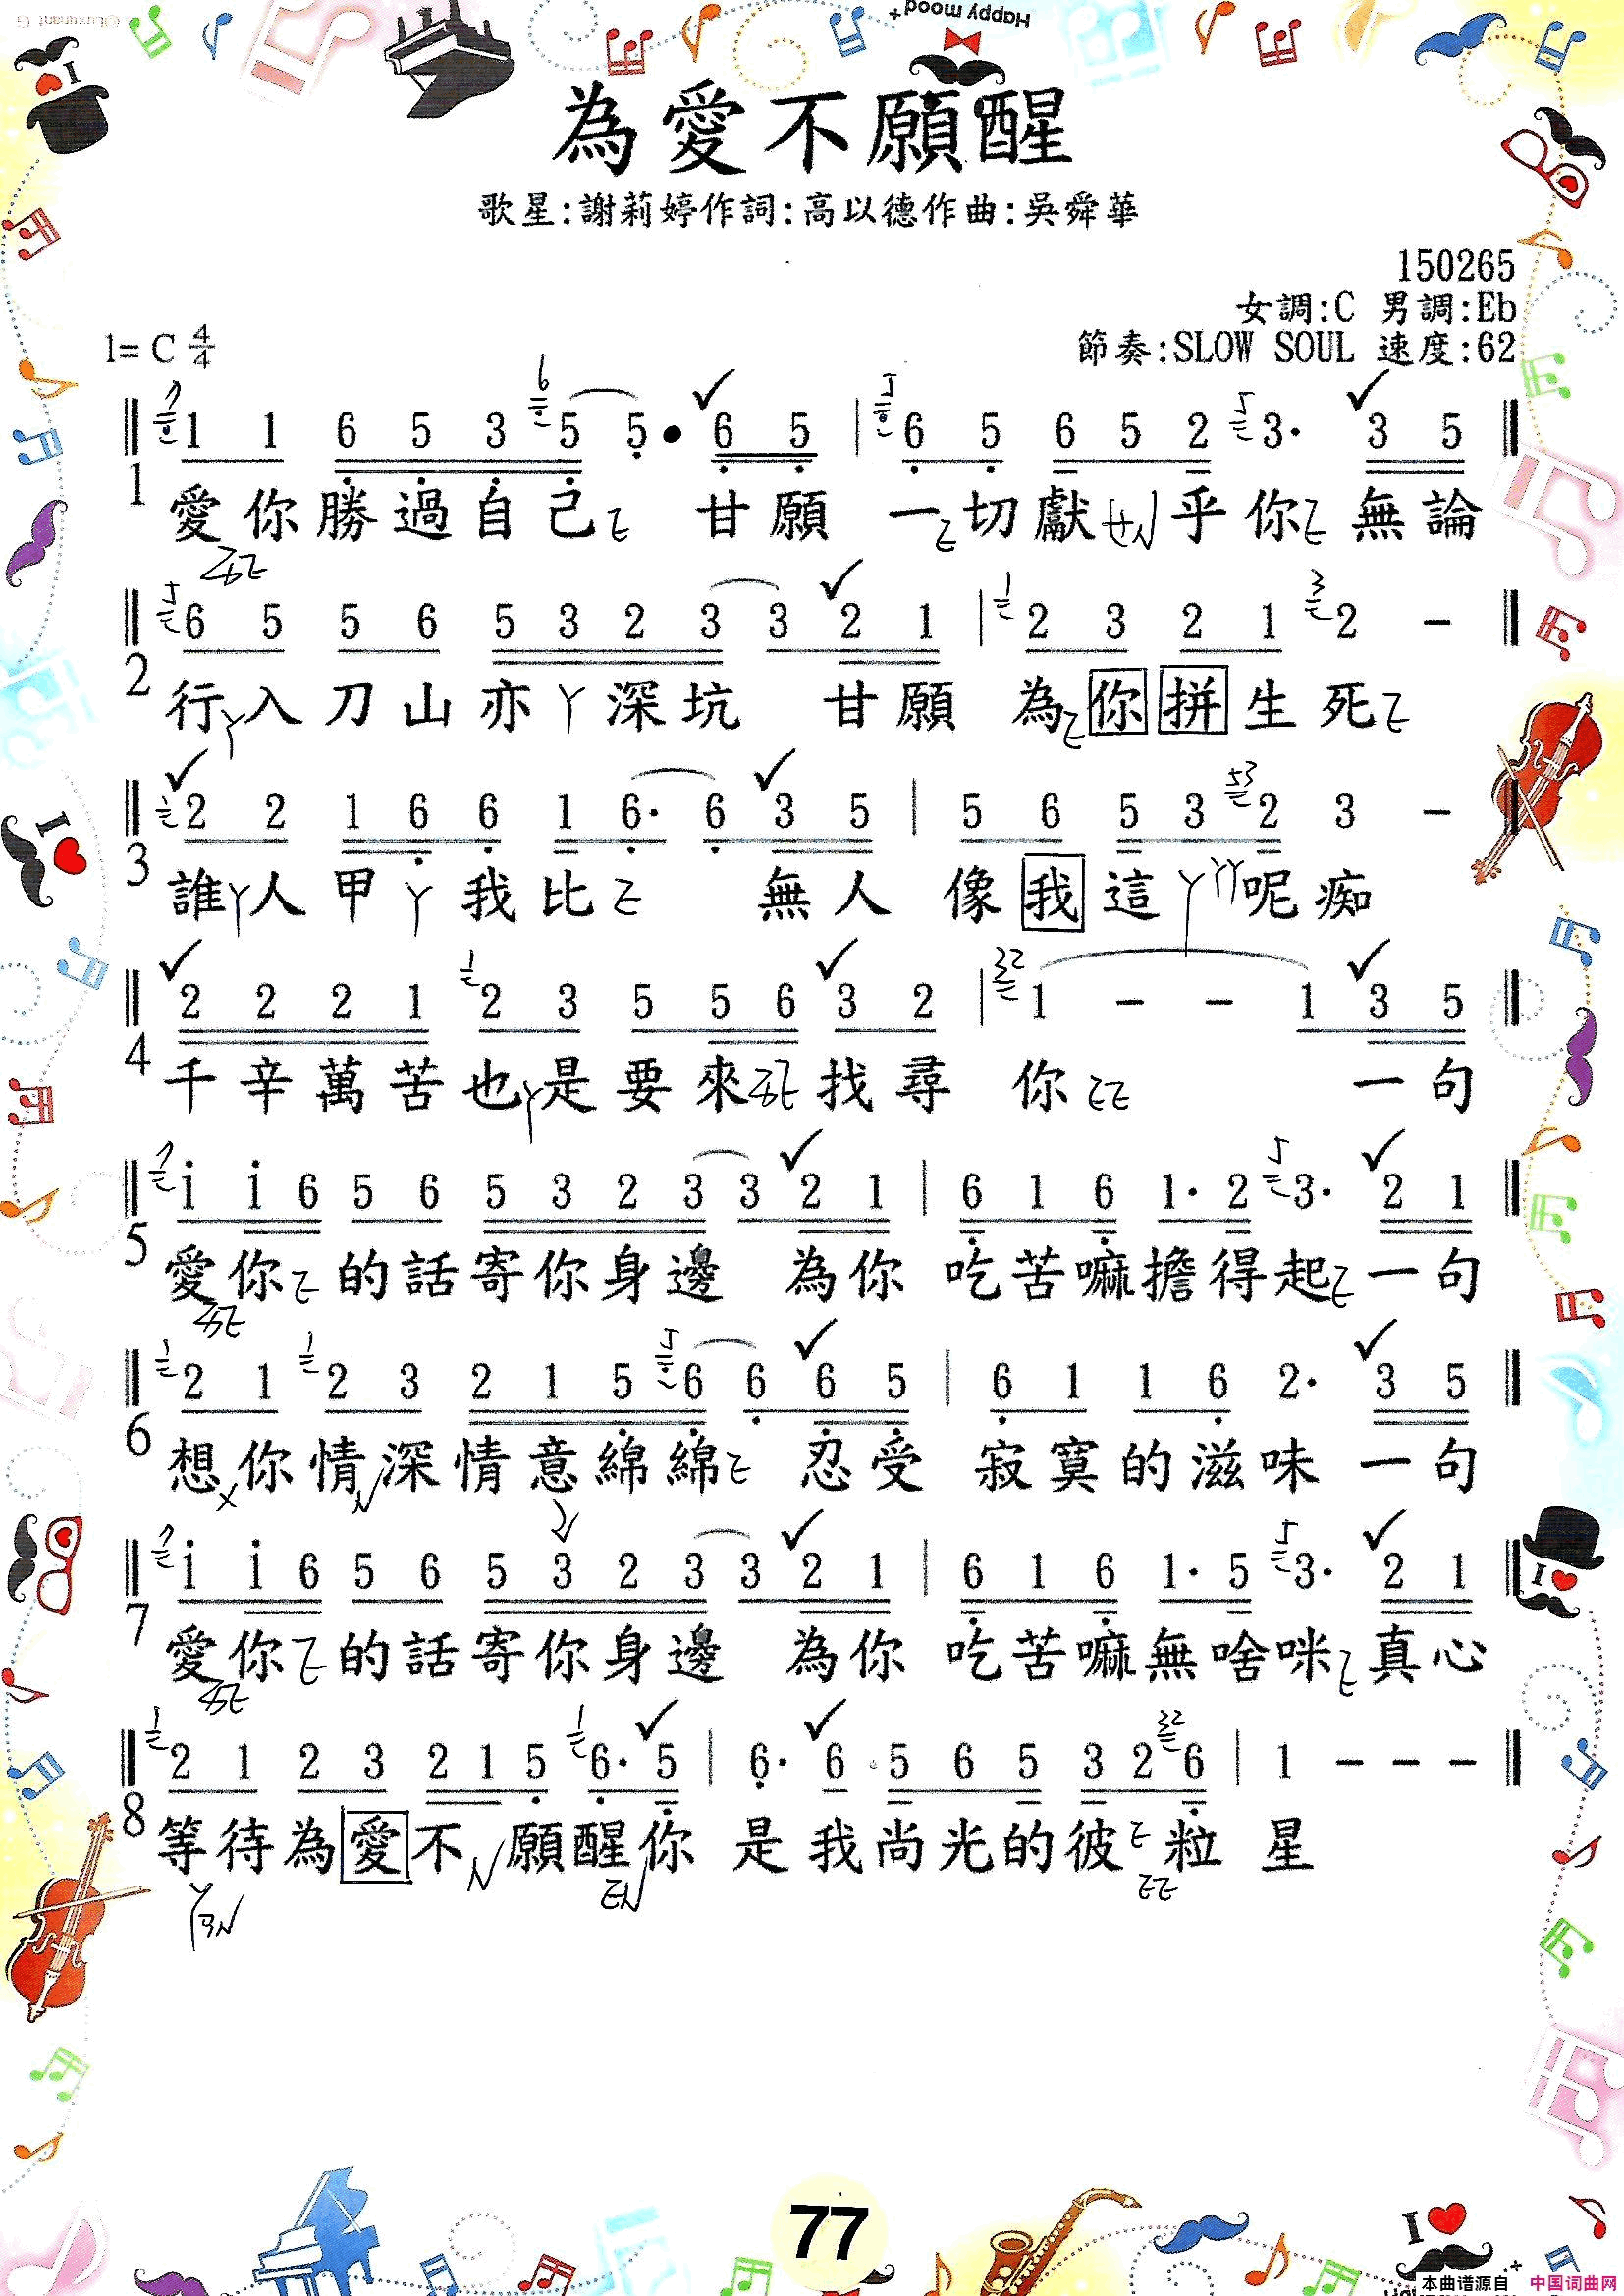 Happy mood+
為愛不願醒
歌星:謝莉婷作詞:高以德作曲:吳舜華
150265
女調:C 男調:Eb
1= C 4/4 節奏:SLOW SOUL 速度:62
1 1 6 5 3 5 5 • 6 5 | 6 5 6 5 2 3· 3 5
1 愛你勝過自己ㄛ 甘願 一ㄛ切獻ㄝㄣ乎你ㄛ無論
6 5 5 6 5 3 2 3 3 2 1 | 2 3 2 1 2 -
2 行ㄚ入刀山亦ㄚ深坑 甘願 為ㄛ你拼生死ㄛ
2 2 1 6 6 1 6· 6 3 5 | 5 6 5 3 2 3 -
3 誰ㄚ人甲ㄚ我比ㄛ 無人 像我這ㄚㄚㄚ呢痴
2 2 2 1 2 3 5 5 6 3 2 | 1 - - 1 3 5
4 千辛萬苦也ㄚ是要來 找尋 你 一句
i i 6 5 6 5 3 2 3 3 2 1 | 6 1 6 1· 2 3· 2 1
5 愛你ㄛ的話寄你身邊 為你 吃苦嘛擔得起ㄛ一句
2 1 2 3 2 1 5 6 6 6 5 | 6 1 1 6 2· 3 5
6 想你情ㄣ深情意綿綿ㄛ 忍受 寂寞的滋味 一句
i i 6 5 6 5 3 2 3 3 2 1 | 6 1 6 1· 5 3· 2 1
7 愛你ㄛ的話寄你身邊 為你 吃苦嘛無啥咪ㄛ真心
2 1 2 3 2 1 5 6· 5 | 6· 6 5 6 5 3 2 6 | 1 - - -
8 等待為愛不ㄣ願醒你 是我尚光的彼ㄛ粒 星
77
本曲谱源自 中国词曲网